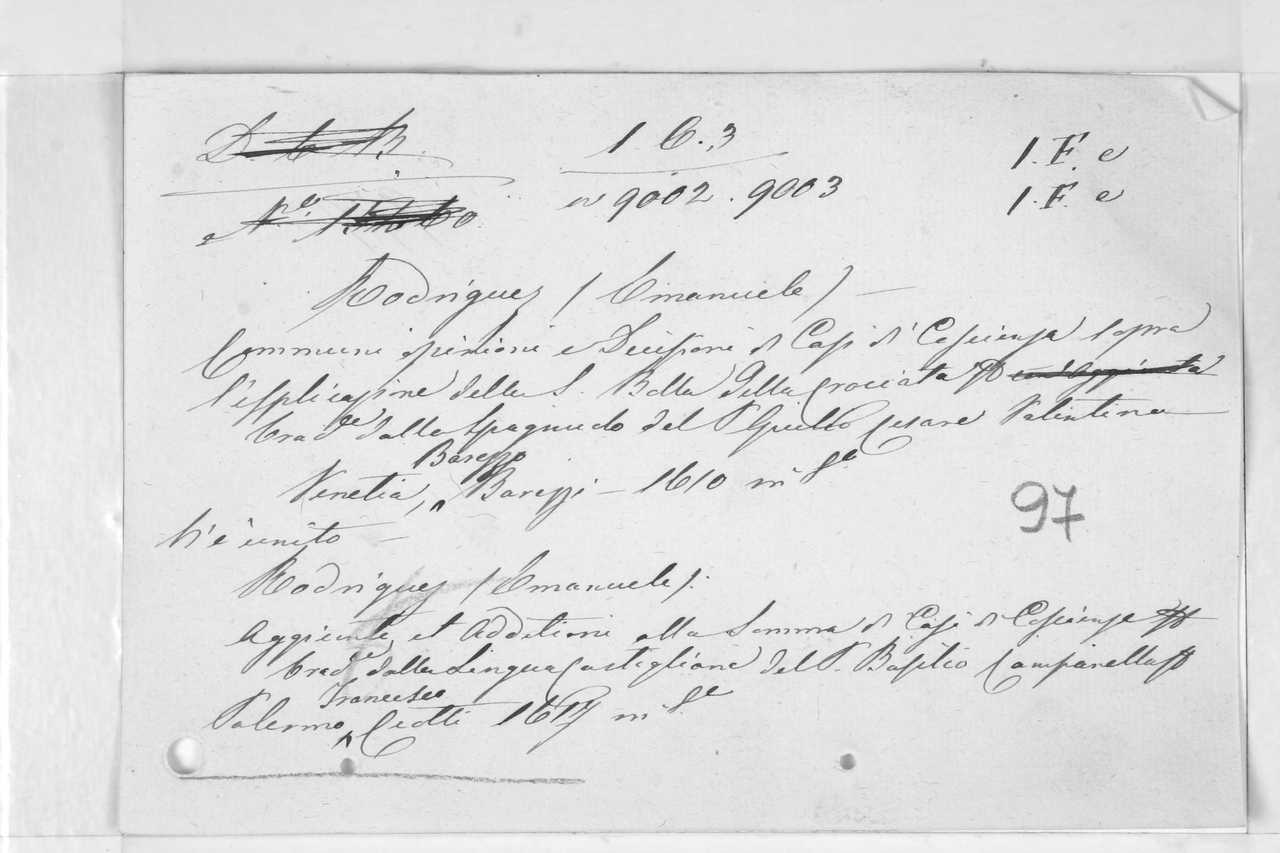 1. C. 3
n 9002. 9003
1. F. e
1. F. e
Rodriguez (Emanuele) —
Communi opinioni e Decisioni di Casi di Coscienza sopra
l'esplicazione della S. Bolla della Crociata
trad.te dallo Spagnuolo del P. Giulio Cesare Valentino
Barezzo
Venetia, Barezzi — 1610 in 8.o
V'è unito —
Rodriguez (Emanuele).
Aggiunte, et Additioni alla Somma di Casi di Coscienza
trad.te dalla Lingua Castigliana del P. Basilio Campanella
Francesco
Palermo, Ciotti in 8.o
97